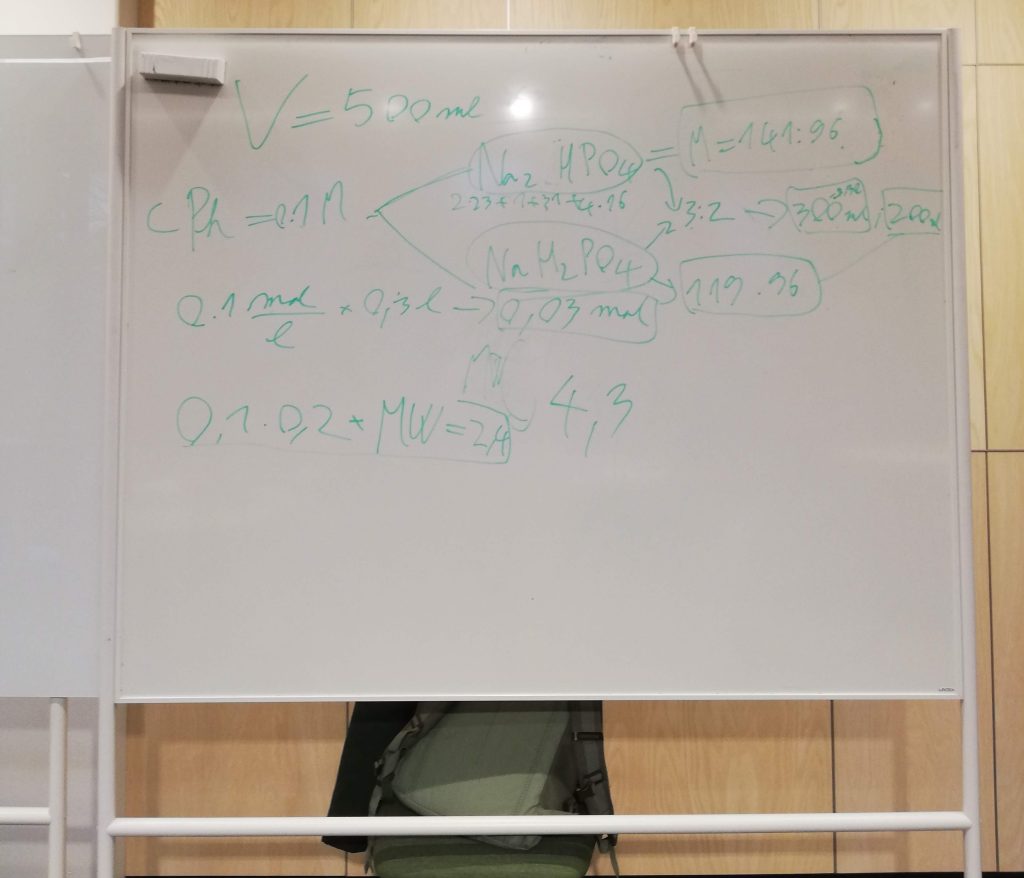 V = 500ml
Na₂ HPO₄ = M = 141.96
2·23+1+31+4·16
cPh = 0.1 M
3:2 → 300ml, 200
NaH₂PO₄
119.96
0.1 mol/l × 0,3 l → 0,03 mol
MW
0,1 · 0,2 * MW = 2,4 4,3